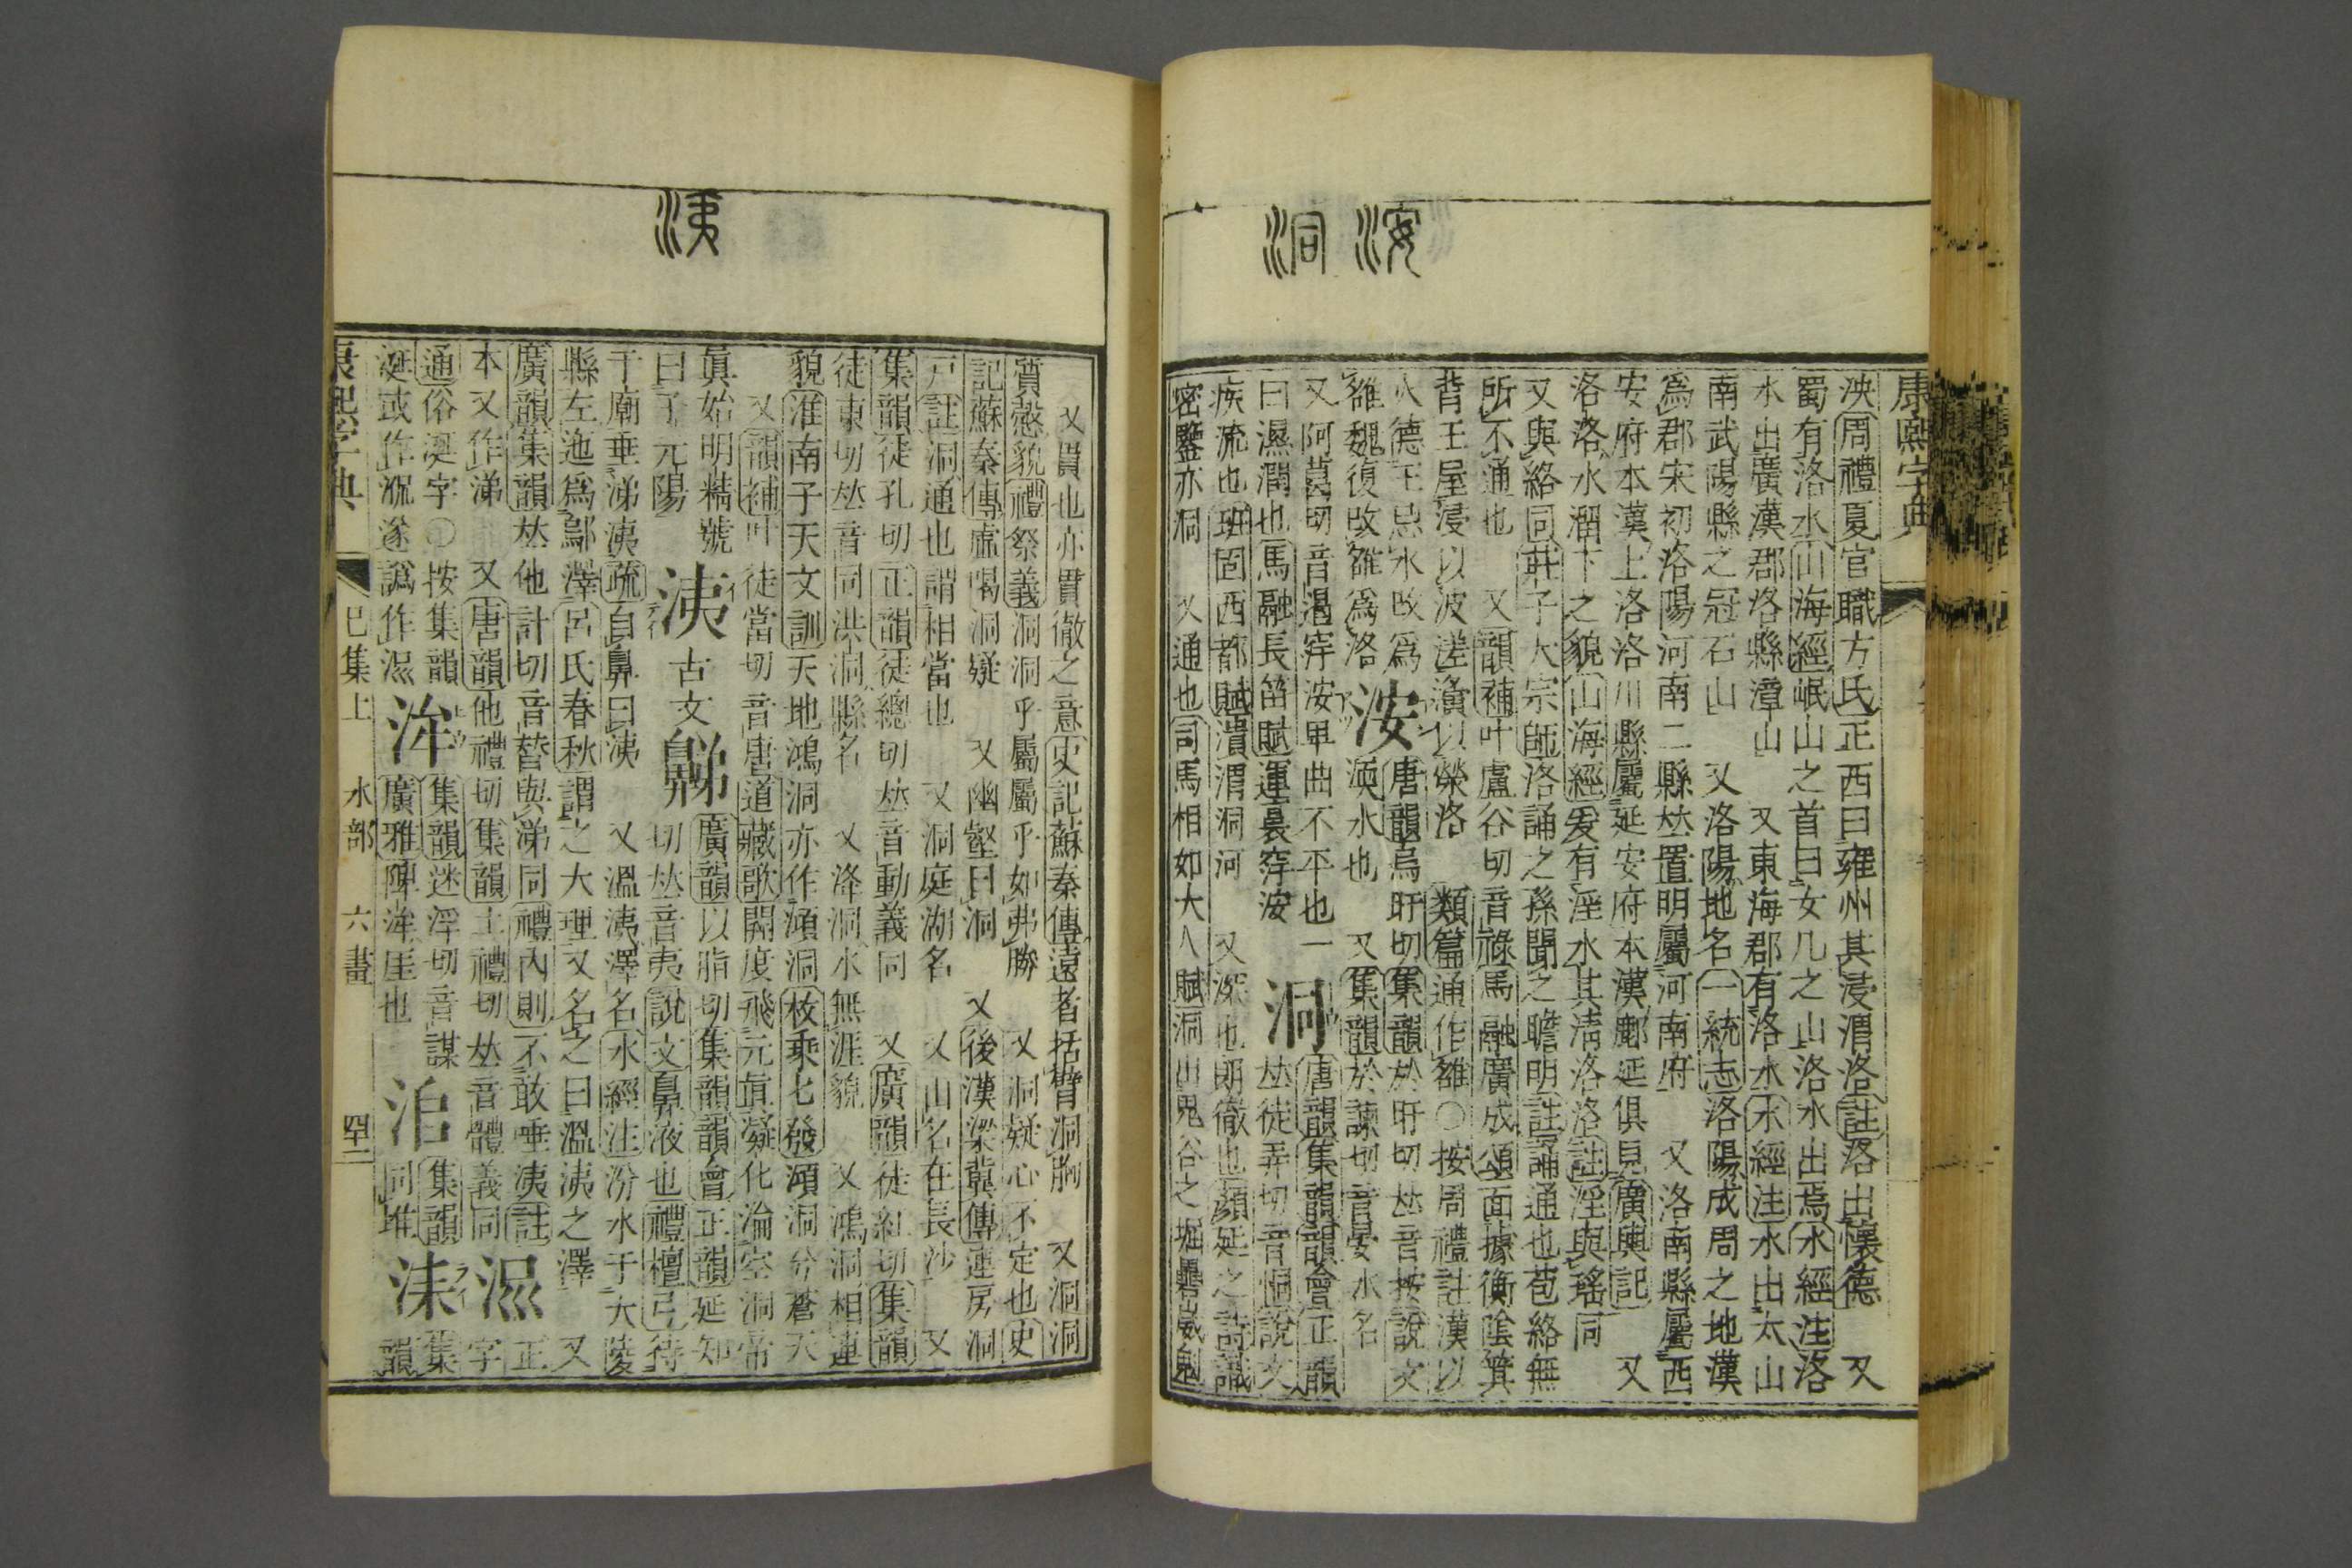 洝
洞
康熙字典
泱周禮夏官職方氏正西曰雍州其浸渭洛註洛出懷德 又
蜀有洛水山海經岷山之首曰女几之山洛水出焉水經注洛
水出廣漢郡洛縣漳山 又東海郡有洛水水經注水出太山
南武陽縣之冠石山 又洛陽地名一統志洛陽成周之地漢
爲郡宋初洛陽河南二縣𠀤置明屬河南府 又洛南縣屬西
安府本漢上洛洛川縣屬延安府本漢鄜延俱見廣輿記 又
洛洛水溜下之貌山海經爰有淫水其淸洛洛註淫與瑤同
又與絡同莊子大宗師洛誦之孫聞之瞻明註誦通也苞絡無
所不通也 又韻補叶盧谷切音祿馬融廣成頌面據衡陰箕
背王屋浸以波溠濱以滎洛 類篇通作雒〇按周禮註漢以
火德王忌水改爲
雒魏復改雒爲洛
洝
唐韻烏旰切集韻於旰切𠀤音按說文
渜水也 又集韻於諫切音晏水名
又阿葛切音遏穻洝卑曲不平也一
曰濕潤也馬融長笛賦運裛穻洝
洞
唐韻集韻韻會正韻
𠀤徒弄切音恫說文
疾流也班固西都賦潰渭洞河 又深也朗徹也顏延之詩識
密鑒亦洞 又通也司馬相如大人賦洞出鬼谷之堀礨崴魁
洟
又貫也亦貫徹之意史記蘇秦傳遠者括臂洞胸 又洞洞
質慤貌禮祭義洞洞乎屬屬乎如弗勝 又洞疑心不定也史
記蘇秦傳虛喝洞疑 又幽壑曰洞 又後漢梁冀傳連房洞
戸註洞通也謂相當也 又洞庭湖名 又山名在長沙 又
集韻徒孔切正韻徒總切𠀤音動義同 又廣韻徒紅切集韻
徒東切𠀤音同洪洞縣名 又洚洞水無涯貌 又鴻洞相連
貌淮南子天文訓天地鴻洞亦作澒洞枚乘七發澒洞兮蒼天
又韻補叶徒當切音唐道藏歌開度飛元眞凝化淪空洞常
眞始明精號
曰子元陽
洟
イ
テイ
古文𪖦
廣韻以脂切集韻韻會正韻延知
切𠀤音夷說文鼻液也禮檀弓待
于廟垂涕洟疏自鼻曰洟 又溫洟澤名水經注汾水于大陵
縣左迤爲鄔澤呂氏春秋謂之大理又名之曰溫洟之澤 又
廣韻集韻𠀤他計切音替與涕同禮內則不敢唾洟註
本又作涕 又唐韻他禮切集韻土禮切𠀤音體義同
正
字
通俗涎字〇按集韻
涎或作㳄遂譌作
洠
集韻迷浮切音謀
廣雅陴洠厓也
洎
集韻
同堆
洡
ライ
集
韻
康熙字典
巳集上 水部 六畫 四十二